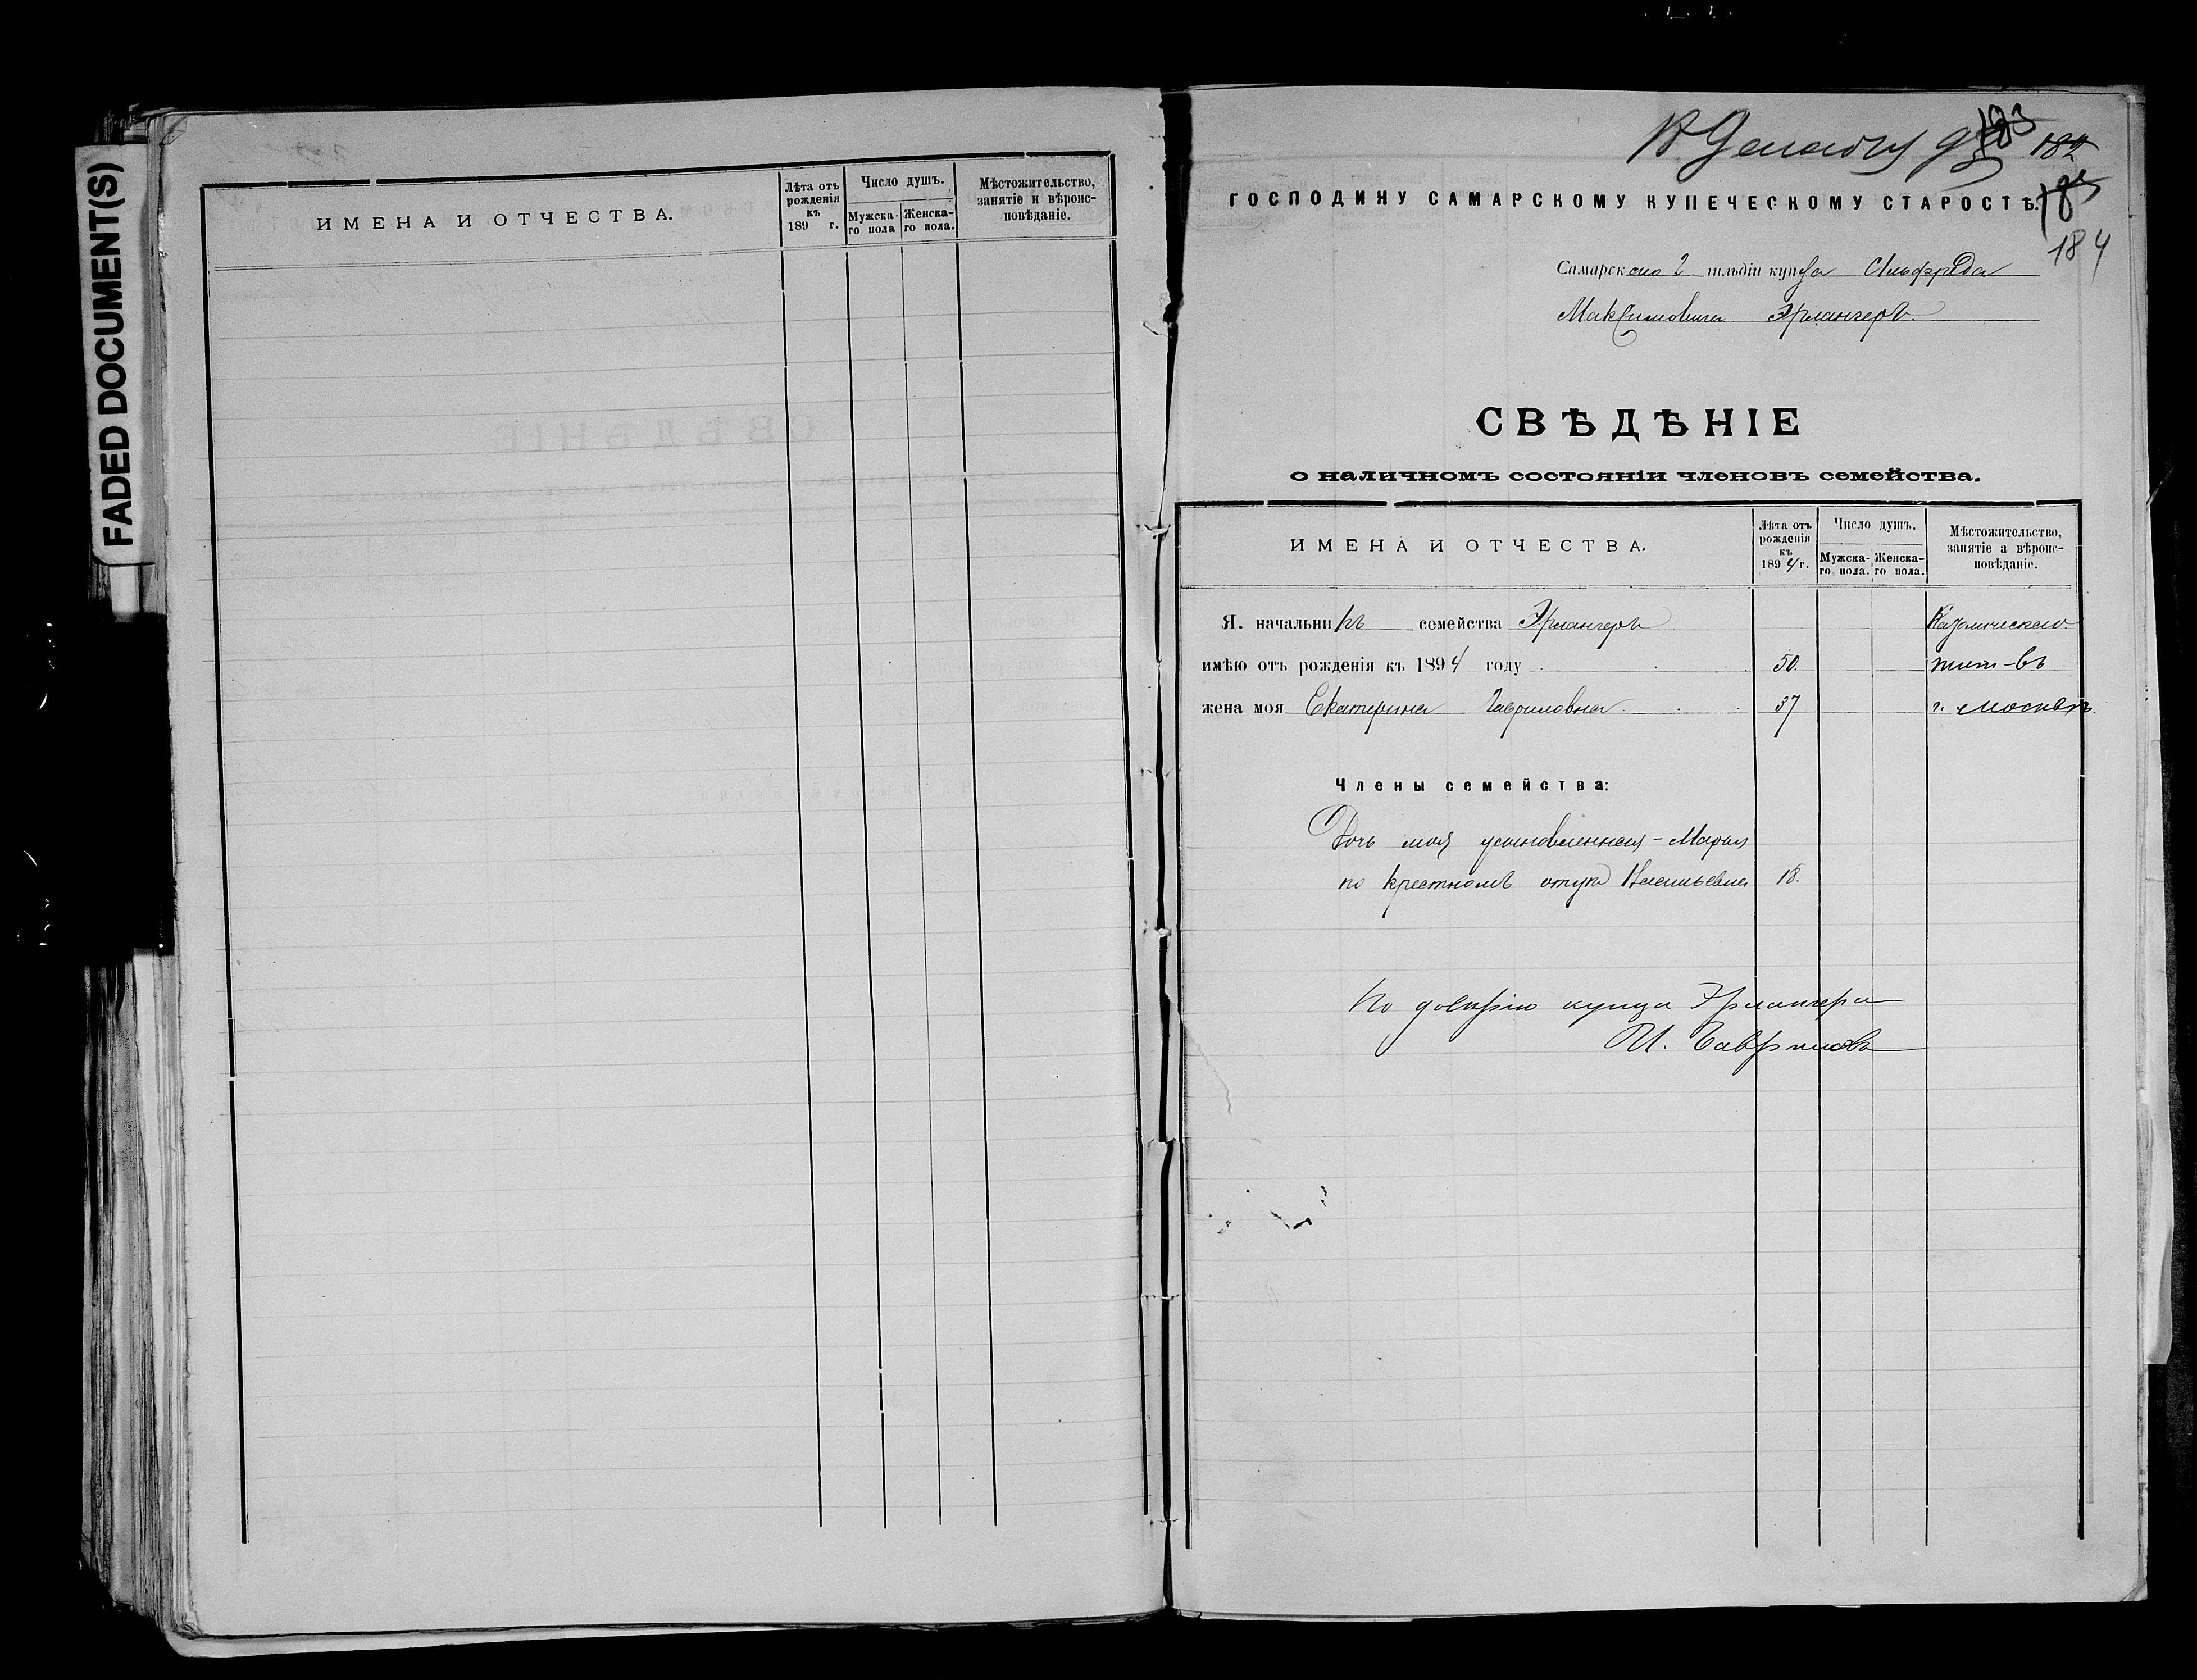 FADED DOCUMENT(S)
ИМЕНА И ОТЧЕСТВА.
Лѣта отъ рожденія къ 189 г.
Число душъ.
Мужска-го пола
Женска-го пола.
Мѣстожительство, занятіе и вѣроис-повѣданіе.
183
182
ГОСПОДИНУ САМАРСКОМУ КУПЕЧЕСКОМУ СТАРОСТѢ.
184
Самарскаго 2 гильдіи купца Альфреда
Максимовича Эрлангеръ
СВѢДѢНІЕ
о наличномъ состояніи членовъ семейства.
ИМЕНА И ОТЧЕСТВА.
Лѣта отъ рожденія къ 1894 г.
Число душъ.
Мужска-го пола.
Женска-го пола.
Мѣстожительство, занятіе а вѣроис-повѣданіе.
Я. начальникъ семейства Эрлангеръ Католическаго
имѣю отъ рожденія къ 1894 году 50. жит-въ
жена моя Екатерина Гавриловна 37 г. Москвѣ
Члены семейства:
Дочь моя усыновленная - Марія
по крестномъ отцѣ Васильевна 18.
По довѣрію купца Эрлангера
И. Гавриловъ